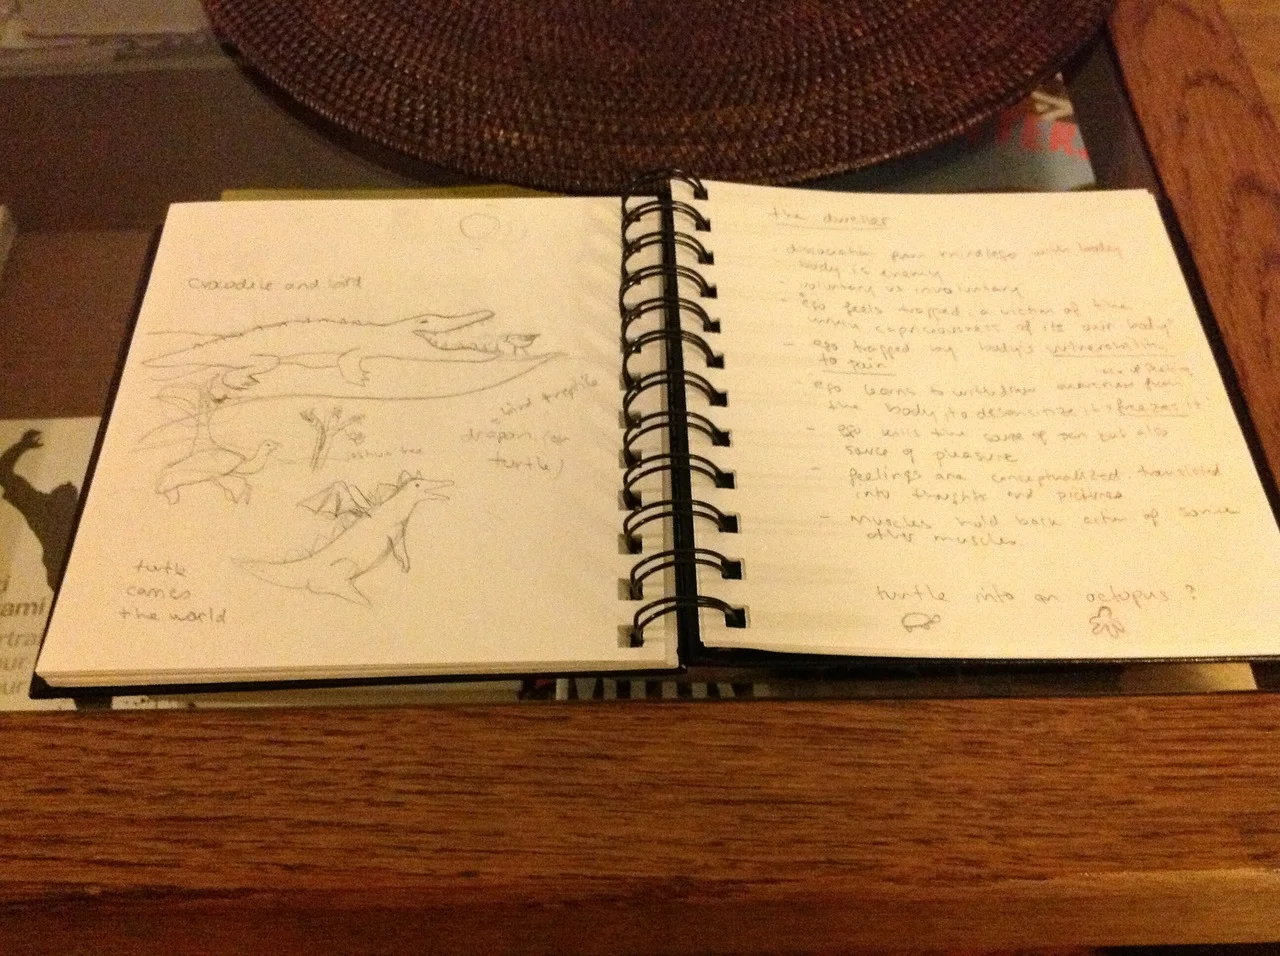 crocodile and bird
bird + reptile
= dragon (or
turtle)
joshua tree
turtle
carries
the world
the
dissociation from mind/ego with body
body is enemy
- voluntary vs involuntary
- ego feels trapped, a victim of the
capriciousness of its own body"
- ego trapped by body's vulnerability
to pain
- ego learns to withdraw awareness from
the body, to desensitize it + freezes it
- ego kills the source of pain but also
source of pleasure
- feelings are conceptualized, translated
into thoughts and pictures
- muscles hold back action of some
other muscles.
turtle into an octopus?
ami
our
our